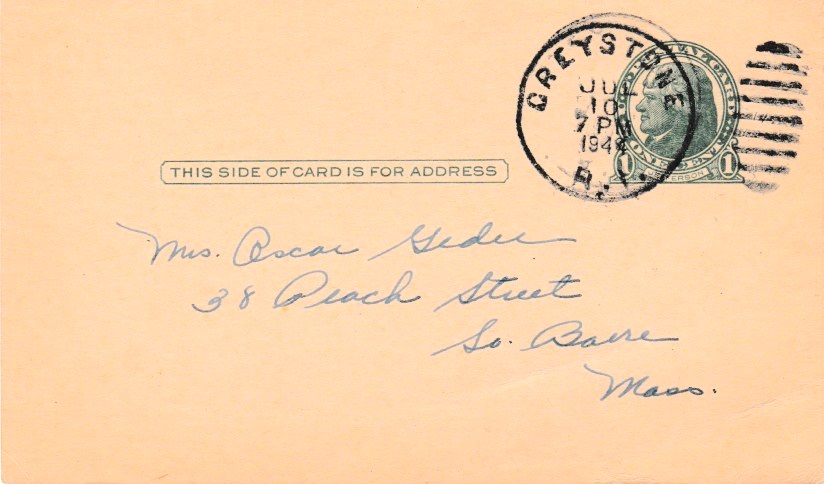 GREYSTONE
JUL
10
7 PM
194
R.I.
POSTAL CARD
1 ONE CENT 1
JEFFERSON
THIS SIDE OF CARD IS FOR ADDRESS
Mrs. Oscar
38 Peach Street
So. Barre
Mass.